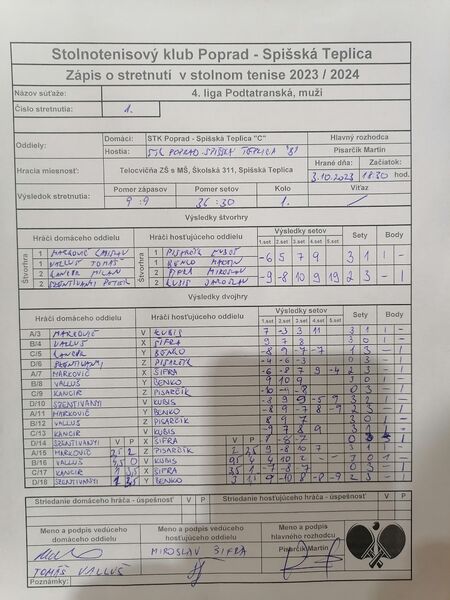 Stolnotenisový klub Poprad - Spišská Teplica
Zápis o stretnutí v stolnom tenise 2023 / 2024
Názov súťaže: 4. liga Podtatranská, muži
Číslo stretnutia: 1.
Oddiely: Domáci: STK Poprad - Spišská Teplica "C" Hlavný rozhodca
Hostia: STK POPRAD-SPIŠSKÁ TEPLICA "B" Pisarčík Martin
Hracia miesnosť: Telocvičňa ZŠ s MŠ, Školská 311, Spišská Teplica Hrané dňa: Začiatok:
3.10.2023 18:30 hod.
Výsledok stretnutia: Pomer zápasov Pomer setov Kolo Víťaz
9:9 36:30 1.
Výsledky štvorhry
Hráči domáceho oddielu Hráči hosťujúceho oddielu Výsledky setov Sety Body
1.set 2.set 3.set 4.set 5.set
Štvorhra 1 MARKOVIČ Štvorhra 1 PISARČÍK -6 5 7 9 3 1 1 -
1 VALLUŠ TOMÁŠ 1 BENKO MARTIN
2 KANCIR MILAN 2 ŠIFRA MIROSLAV -9 -8 10 9 19 3 2 1 -
2 SZENTIVÁNYI PETER 2 KUBIS JAROSLAV
Výsledky dvojhry
Hráči domáceho oddielu Hráči hosťujúceho oddielu Výsledky setov Sety Body
1.set 2.set 3.set 4.set 5.set
A/3 MARKOVIČ V KUBIS 7 -3 3 11 3 1 1 -
B/4 VALLUŠ X ŠIFRA 9 7 8 3 0 1 -
C/5 KANCIR Y BENKO -8 9 -7 -7 1 3 - 1
D/6 SZENTIVÁNYI Z PISARČÍK -4 -6 -3 0 3 - 1
A/7 MARKOVIČ X ŠIFRA -6 -8 7 9 -4 2 3 - 1
B/8 VALLUŠ Y BENKO 9 10 9 3 0 1 -
C/9 KANCIR Z PISARČÍK 0 3 - 1
D/10 SZENTIVÁNYI V KUBIS -8 9 9 -5 9 3 2 1 -
A/11 MARKOVIČ Y BENKO -9 8 -7 8 -9 2 3 - 1
B/12 VALLUŠ Z PISARČÍK
C/13 KANCIR V KUBIS -9 7 8 9 3 1 1 -
D/14 SZENTIVÁNYI V P X ŠIFRA V P -8 -7 0 3 - 1
A/15 MARKOVIČ Z PISARČÍK
B/16 VALLUŠ V KUBIS
C/17 KANCIR X ŠIFRA
D/18 SZENTIVÁNYI Y BENKO
Striedanie domáceho hráča - úspešnosť V P Striedanie hosťujúceho hráča - úspešnosť V P
Meno a podpis vedúceho domáceho oddielu Meno a podpis vedúceho hosťujúceho oddielu Meno a podpis hlavného rozhodcu
MIROSLAV ŠIFRA Pisarčík Martin
TOMÁŠ VALLUŠ
Poznámky: